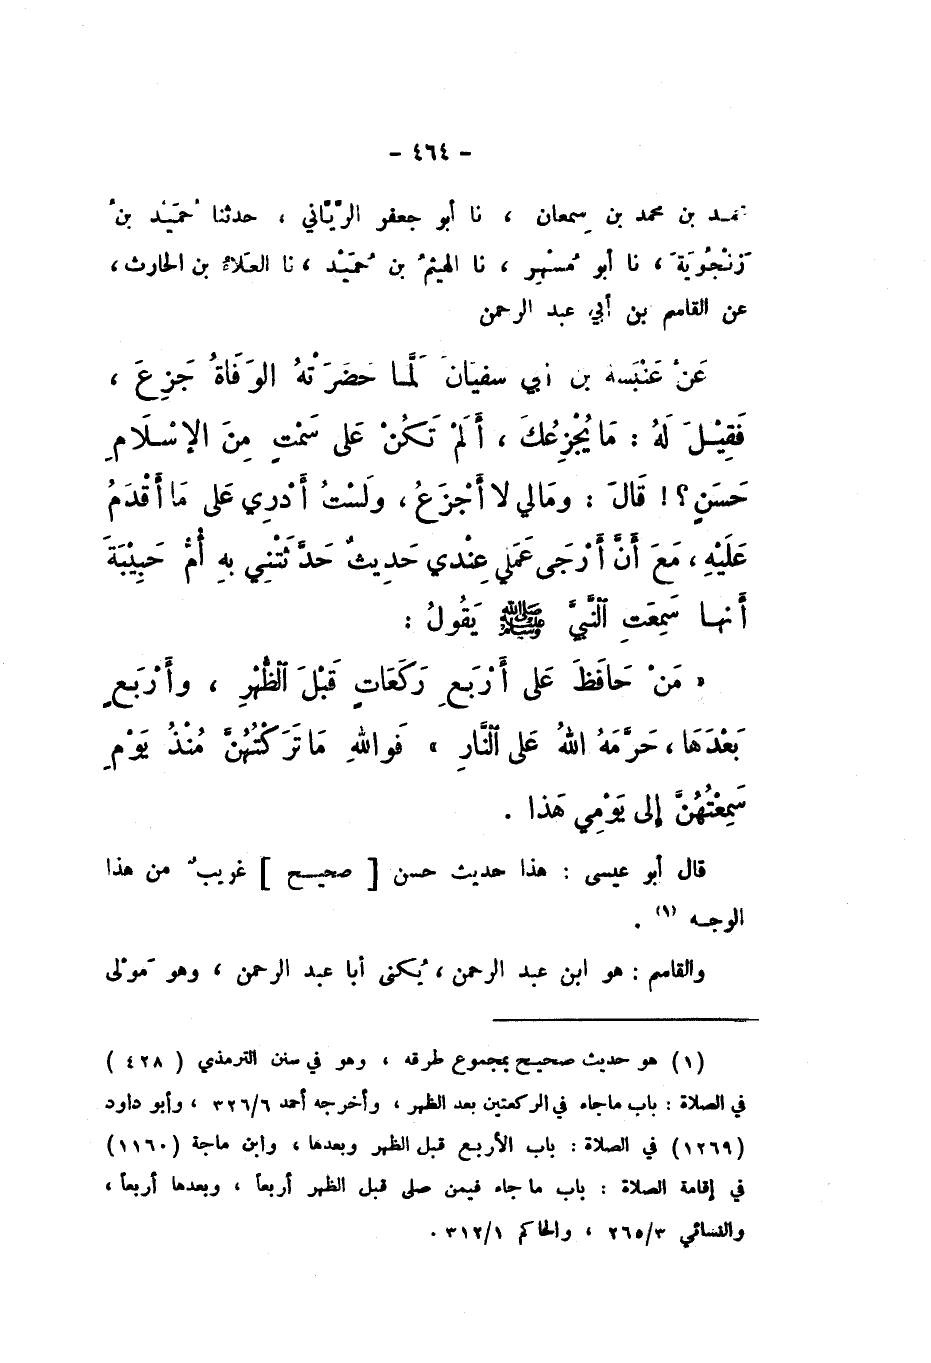 - ٤٦٤ -
بن محمد بن سِمعان ، نا أبو جعفر الرَّيَّاني ، حدثنا حُمَيْد بنُ
زَنْجُويَةَ ، نا أبو مُسْهِر ، نا الهيثمُ بن حُمَيْد ، نا العلاءُ بن الحارث ،
عن القاسم بن أبي عبد الرحمن
عَنْ عَنْبَسة بن أبي سفيَان لَمَّا حَضَرَتْهُ الوَفَاةُ جَزِعَ ،
فَقِيْلَ لَهُ : مَا يُجْزِعُكَ ، أَلَمْ تَكُنْ عَلى سَمْتٍ مِنَ الإسْلَامِ
حَسَنٍ ؟ ! قَالَ : ومَالي لا أَجْزَعُ ، ولَسْتُ أَدْرِي عَلى مَا أَقْدَمُ
عَلَيْهِ ، مَعَ أَنَّ أَرْجَى عَمَلي عِنْدي حَدِيثٌ حَدَّثَتْنِي بِهِ أُمُّ حَبِيْبَةَ
أَنها سَمِعَتِ ٱلنَّبِيَّ ﷺ يَقُولُ :
« مَنْ حَافَظَ عَلى أَرْبَعِ رَكَعَاتٍ قَبْلَ ٱلظُّهْرِ ، وأَرْبَعٍ
بَعْدَهَا ، حَرَّمَهُ اللهُ عَلى ٱلنَّارِ » فَواللهِ مَا تَرَكْتُهُنَّ مُنْذُ يَوْمِ
سَمِعْتُهُنَّ إِلى يَوْمِي هَذا .
قال أبو عيسى : هذا حديث حسن [ صحيح ] غريبٌ من هذا
الوجه (١) .
والقاسم : هو ابن عبد الرحمن ، يُكنى أبا عبد الرحمن ، وهو مَوْلى
(١) هو حديث صحيح بمجموع طرقه ، وهو في سنن الترمذي ( ٤٢٨ )
في الصلاة : باب ما جاء في الركعتين بعد الظهر ، وأخرجه أحمد ٣٢٦/٦ ، وأبو داود
(١٢٦٩) في الصلاة : باب الأربع قبل الظهر وبعدها ، وابن ماجة (١١٦٠)
في إقامة الصلاة : باب ما جاء فيمن صلى قبل الظهر أربعاً ، وبعدها أربعاً ،
والنسائي ٢٦٥/٣ ، والحاكم ٣١٢/١ .